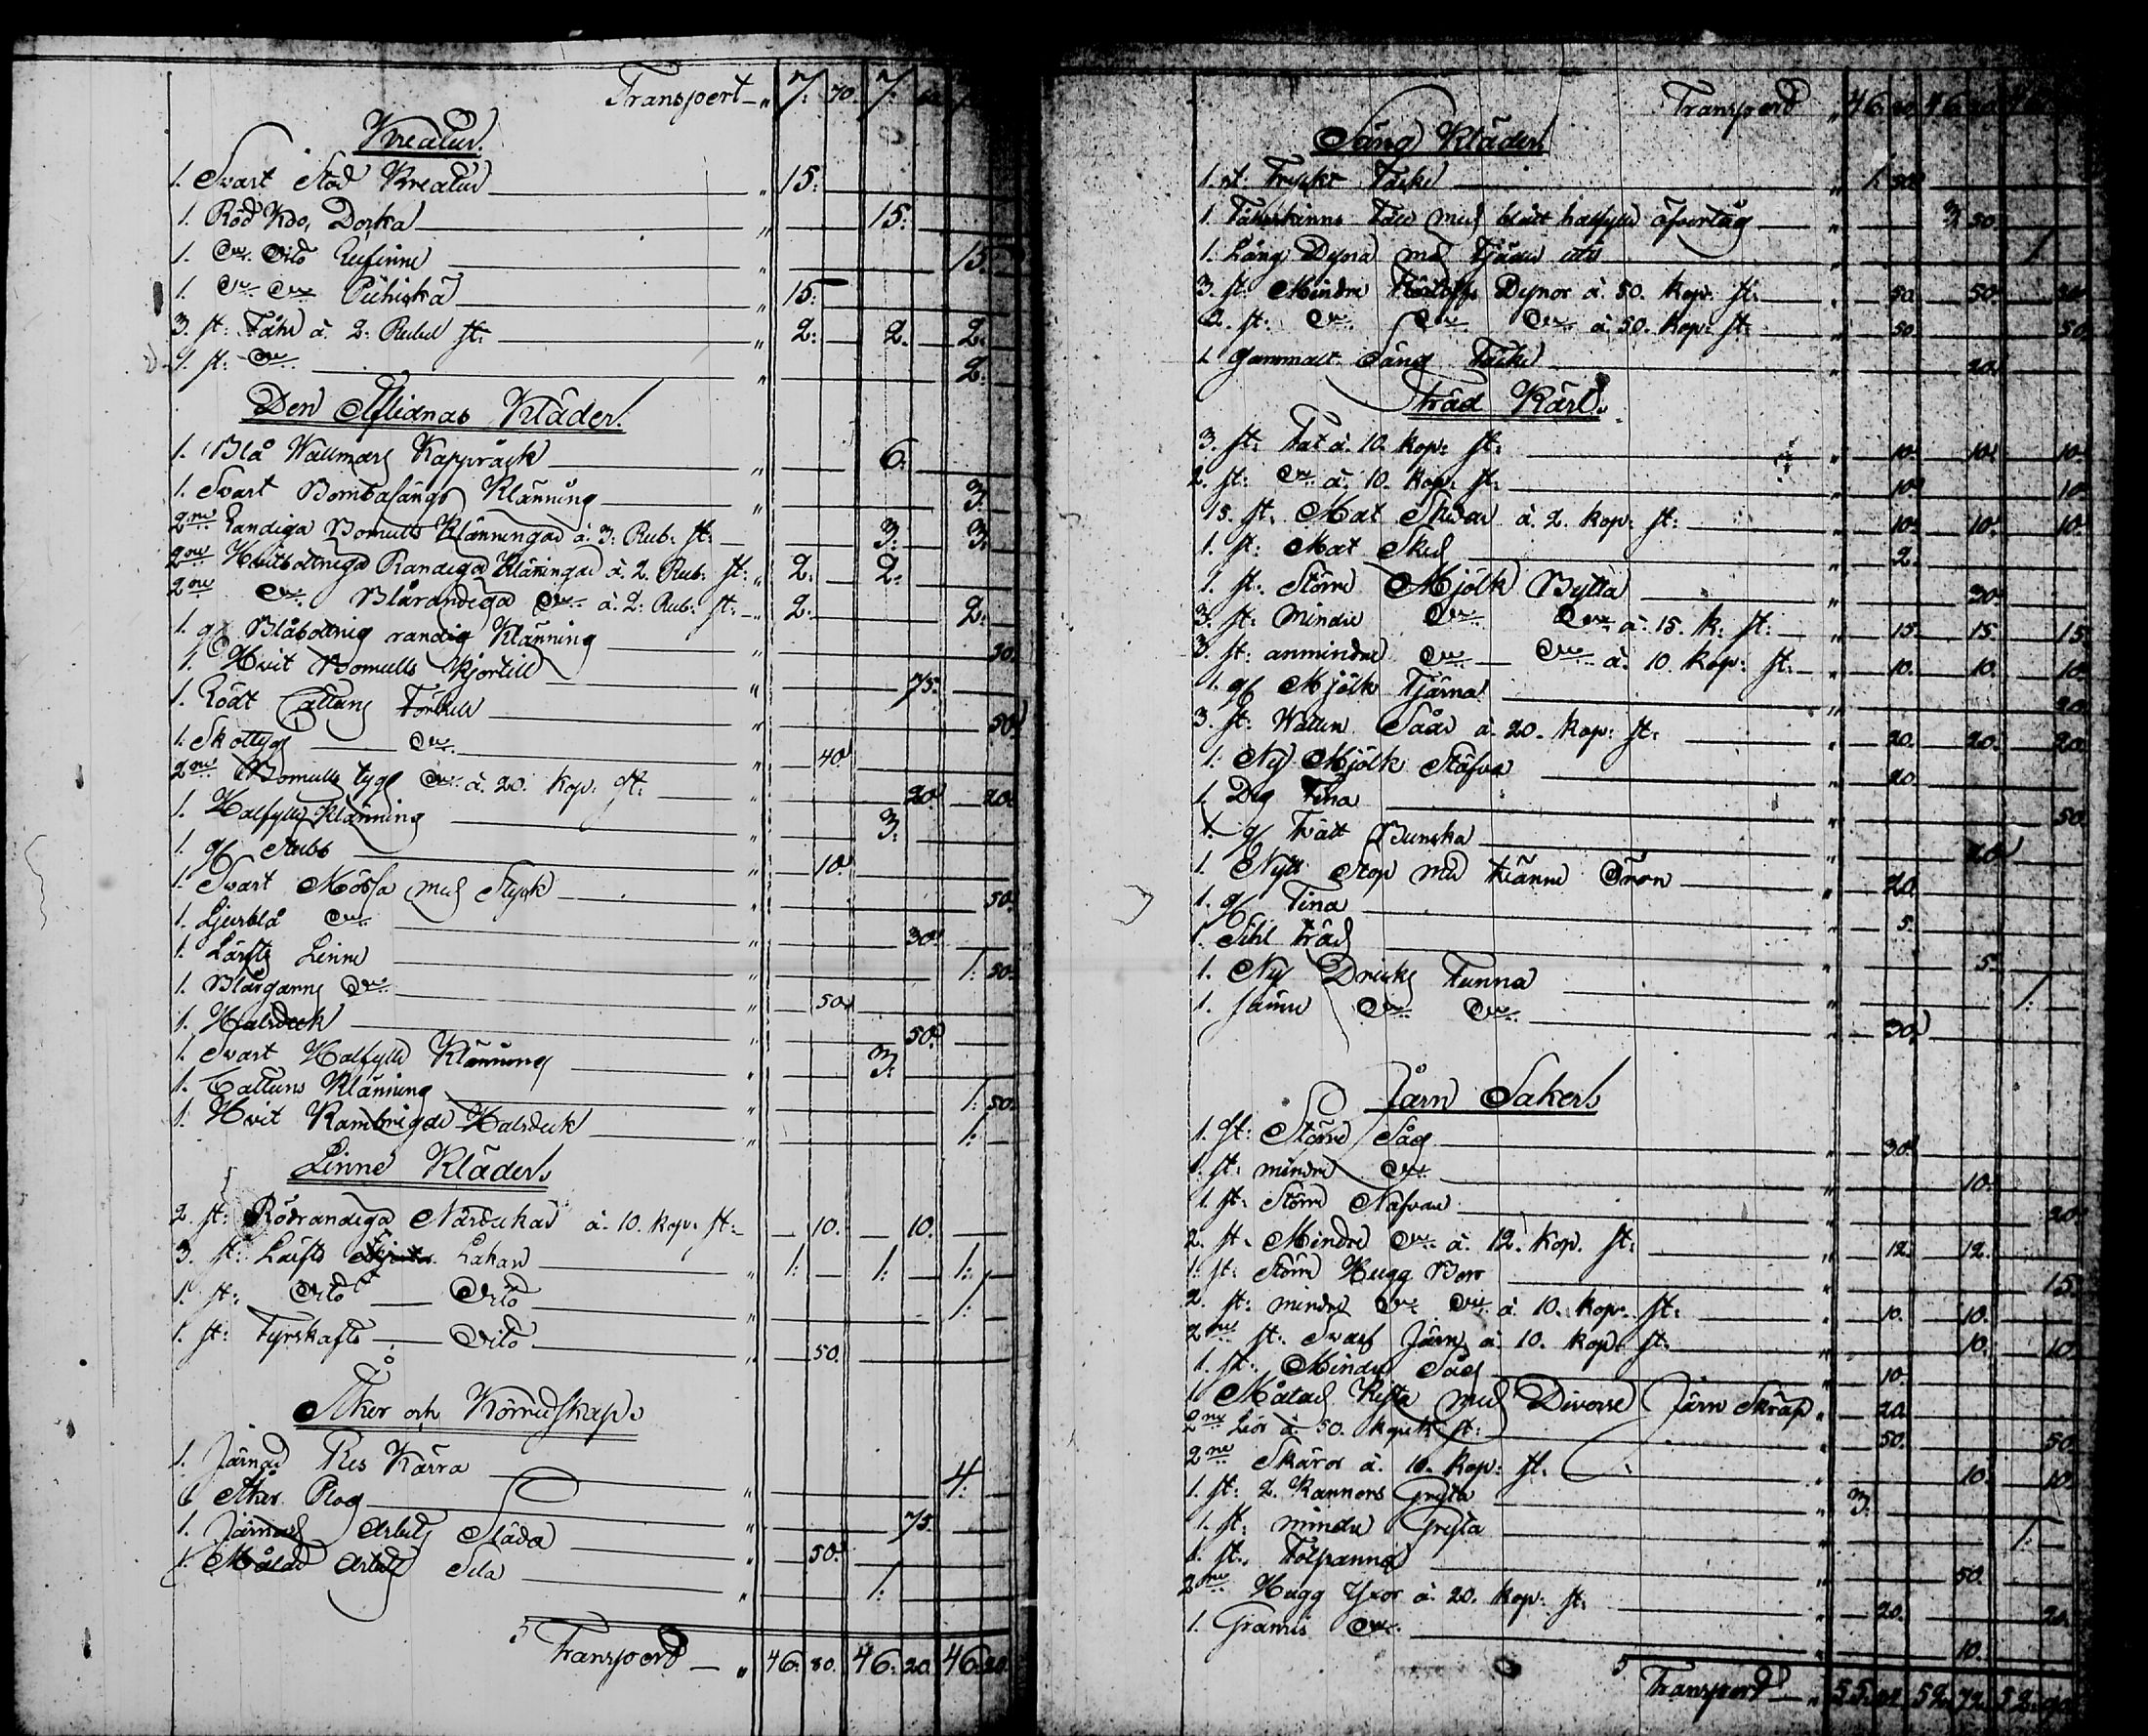 Transport 7: 70. 7:
Kreatur.
1. Svart Stod Kreatur 15:
1. Röd Koo, Dorka 15:
1. Do Dito 15:
1. Do Do 15:
3. st: Fåhr à 2: Rubel st: 2: 2. 2.
1. st: Do 2:
Den Aflidnas Kläder.
1. Blå Wallmars Kappråck 6.
1. Svart Bombasängs Klänning 3.
2ne Randiga Bomulls Klänningar à 3: Rub: st: 3: 3.
2ne Hvitbottniga Randiga Klänningar à 2. Rub: st: 2: 2:
2ne Do Blårandiga Do à 2: Rub: st: 2: 2:
1. gl Blåbottnig randig Klänning 50.
1. Hvit Bomulls Kjortill 75.
1. Rödt Cattuns Förkläde 50.
1. Skottyg Do 40.
2ne Bomulls tygs Do à 20. Kop: st: 20. 20.
1. Halfylle Klänning 3:
1. gl Stubb 10.
1. Svart Mössa med Styck 50.
1. Ljusblå Do 30.
1. Lärfts Linne 1: 50.
1. Blårgarns Do 50.
1. Halsduk 50.
1. Svart Halfylle Klänning 3:
1. Cattuns Klänning 1: 50.
1. Hvit Kambrigde Halsduk 1:
Linne Kläder.
2. st: Rödrandiga Näsdukar à 10. Kop: st: 10. 10.
3. st: Lärfts Lakan 1: 1: 1:
1. st: Dito Dito 1:
1. st: Fyrskafts Dito 50.
Åker och Körredskap.
1. Järnad Res Kärra 4:
1. Åker Plog 75.
1. Järnad Arbets Släda 50.
1. Målad Arbets Sela 1:
Transport 46. 80. 46: 20. 46. 20.
Transport 46. 80. 46. 20.
Säng Kläder.
1. st. Tryckt Täcke 1. 50.
1. Fåhrskinns Fäll med blått halfylle öfvertåg 3. 50.
1. Lång Dyna med Fjäder uti 1.
3. st. Mindre Dynor à 50. Kop: st: 50. 50. 50.
2. st: Do Do Do à 50. Kop: st: 50. 50.
1. Gammalt Säng Täcke 20.
Träd Kärl.
3. st: Fat à 10. Kop: st: 10. 10. 10.
2. st: Do à 10. Kop: st: 10. 10.
15. st. Mat Skedar à 2. Kop: st: 10. 10. 10.
1. st: Mat Sked 2.
1. st. Större Mjölk Bytta 30.
3. st: Mindre Do Do à 15. K: st: 15. 15. 15.
3. st: anmindre Do Do à 10. Kop: st: 10. 10. 10.
1. gl Mjölk Tjärna 20.
3. st: Watten Såår à 20. Kop: st: 20. 20. 20.
1. Ny Mjölk Stäfva 20.
1. Deg Tina 50.
1. gl Tvätt Bunska 20.
1. Nytt Stop med Öron 20.
1. gl Tina 5.
1. Sihl Träd 5.
1. Ny Dricks Tunna 1:
1. Sämre Do Do 30.
Järn Saker.
1. st: Större Såg 30.
1. st: mindre Do 10.
1. st: Större Nafvare 20.
2. st. Mindre Do à 12. Kop. st: 12. 12.
1. st: Större Hugg Borr 15.
2. st: mindre Do Do à 10. Kop. st: 10. 10.
2ne st: Svarf Järn à 10. Kop: st: 10. 10.
1. st: Mindre Såg 10.
1. Målad Kista med Diverse Järn Skräp 20.
2ne Lior à 50. Kopek st: 50. 50.
2ne Skäror à 10. Kop: st. 10. 10.
1. st: 2. Kannors Gryta 3.
1. st: mindre Gryta 1:
1. st. Tolfpanna 50.
2ne Hugg Yxor à 20. Kop: st: 20. 20.
1. Do 10.
Transport 52. 72. 52.